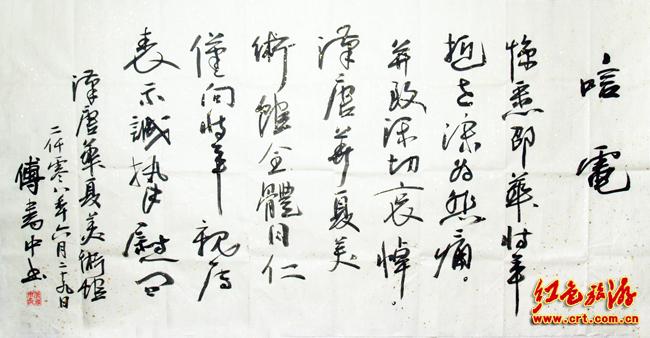 唁電
惊悉邵華将軍
逝世深为悲痛。
并致深切哀悼。
漢唐華夏美
術館全體同仁
僅向将軍親属
表示誠摯慰问
漢唐華夏美術館
二仟零八年六月二十九日
傅 中书
红色旅游
www.crt.com.cn